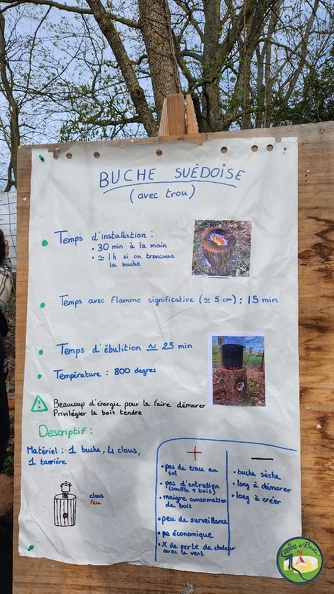 BUCHE SUÉDOISE
(avec trou)
Temps d'installation :
• 30 min à la main
• ≃ 1h si on tronconne
la buche
Temps avec flamme significative (≃ 5 cm) : 15 min
Temps d'ébulition ≃ 25 min
Température : 800 degres
Beaucoup d'énergie pour le faire démarer
Privilégier le bois tendre
Descriptif :
Matériel : 1 buche, 4 clous,
1 tarrière
clous
feu
+
• pas de trou au
sol
• pas d'entretien
(souffle + bois)
• maigre consomation
de bois
• peu de surveillance
• pa économique
• X de perte de chaleur
avec le vent
—
• buche sèche
• long à démarer
• long à créer